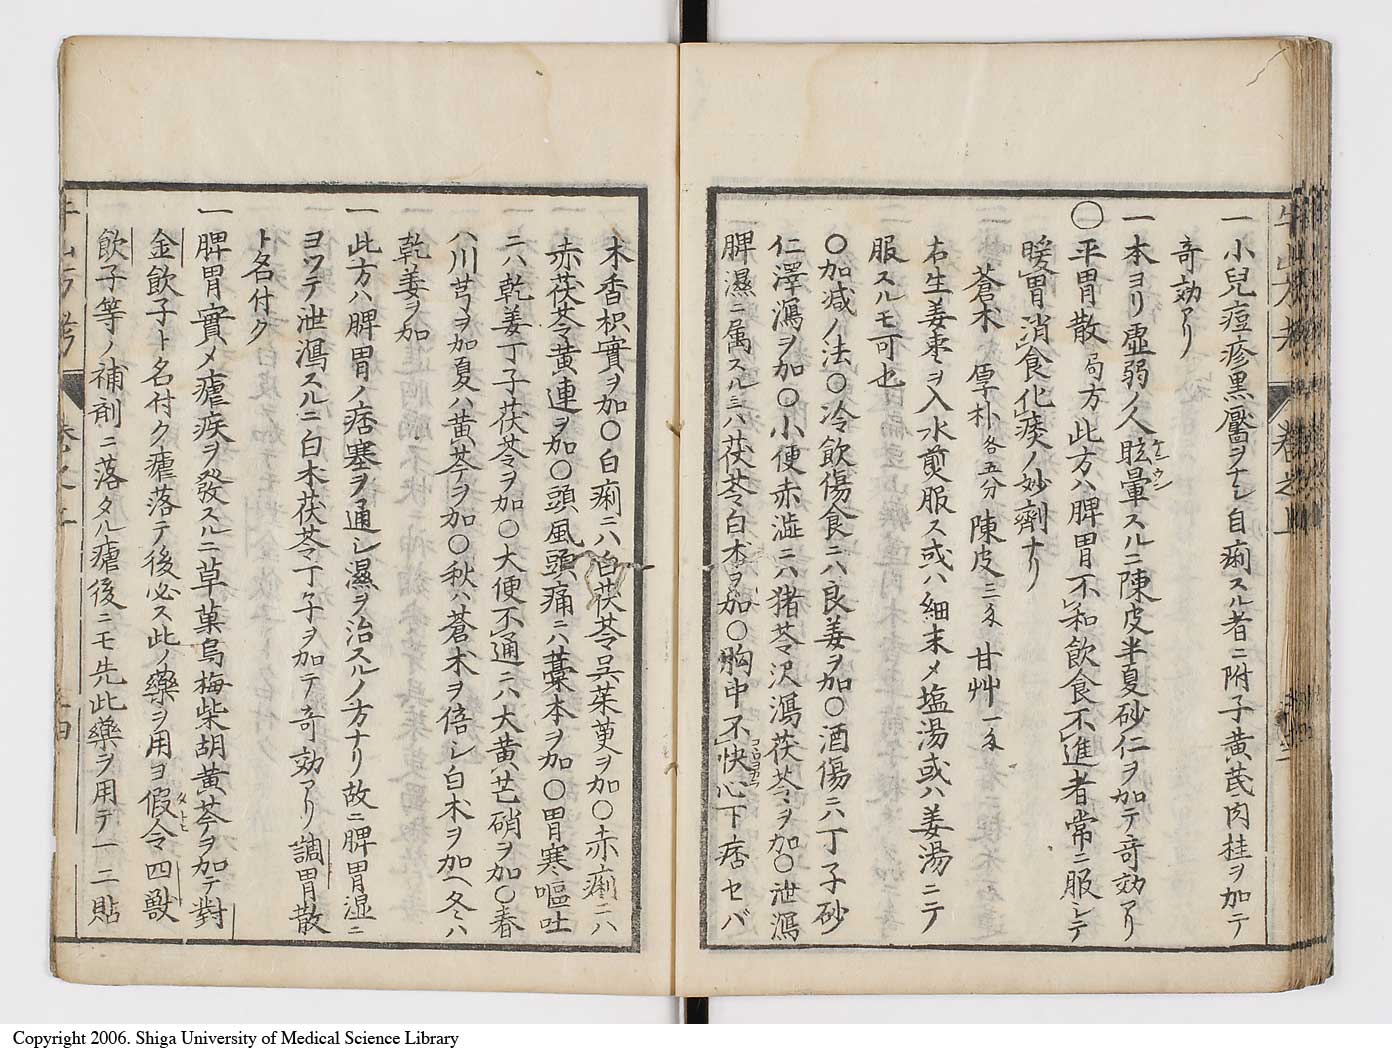 一小兒痘疹黒黶ヲナシ自痢スル者ニ附子黄芪肉桂ヲ加テ
竒効アリ
一本ヨリ虚弱ノ人眩暈スルニ陳皮半夏砂仁ヲ加テ竒効アリ
〇平胃散局方此方ハ脾胃不和飲食不進者常ニ服シテ
暖胃消食化痰ノ妙劑ナリ
蒼朮厚朴各五分陳皮三分甘艸一分
右生姜枣ヲ入水煎服ス或ハ細末メ塩湯或ハ姜湯ニテ
服スルモ可也
〇加减ノ法〇冷飲傷食ニハ良姜ヲ加〇酒傷ニハ丁子砂
仁澤瀉ヲ加〇小便赤澁ニハ猪苓沢瀉茯苓ヲ加〇泄瀉
脾濕ニ属スルニハ茯苓白朮ヲ加〇胸中不快心下痞セバ
木香枳實ヲ加〇白痢ニハ白茯苓呉茱萸ヲ加〇赤痢ニハ
赤茯苓黄連ヲ加〇頭風頭痛ニハ藁本ヲ加〇胃寒嘔吐
ニハ乾姜丁子茯苓ヲ加〇大便不通ニハ大黄芒硝ヲ加〇春
ハ川芎ヲ加夏ハ黄芩ヲ加〇秋ハ蒼朮ヲ倍シ白朮ヲ加ヘ冬ハ
乾姜ヲ加
一此方ハ脾胃ノ痞塞ヲ通シ濕ヲ治スルノ方ナリ故ニ脾胃湿ニ
ヨツテ泄瀉スルニ白朮茯苓丁子ヲ加テ竒効アリ調胃散
ト名付ク
一脾胃實メ瘧疾ヲ發スルニ草菓烏梅柴胡黄芩ヲ加テ對
金飲子ト名付ク瘧落テ後必ス此ノ藥ヲ用ヨ假令四獣
飲子等ノ補剤ニ落タル瘧後ニモ先此藥ヲ用テ一二貼
Copyright 2006. Shiga University of Medical Science Library